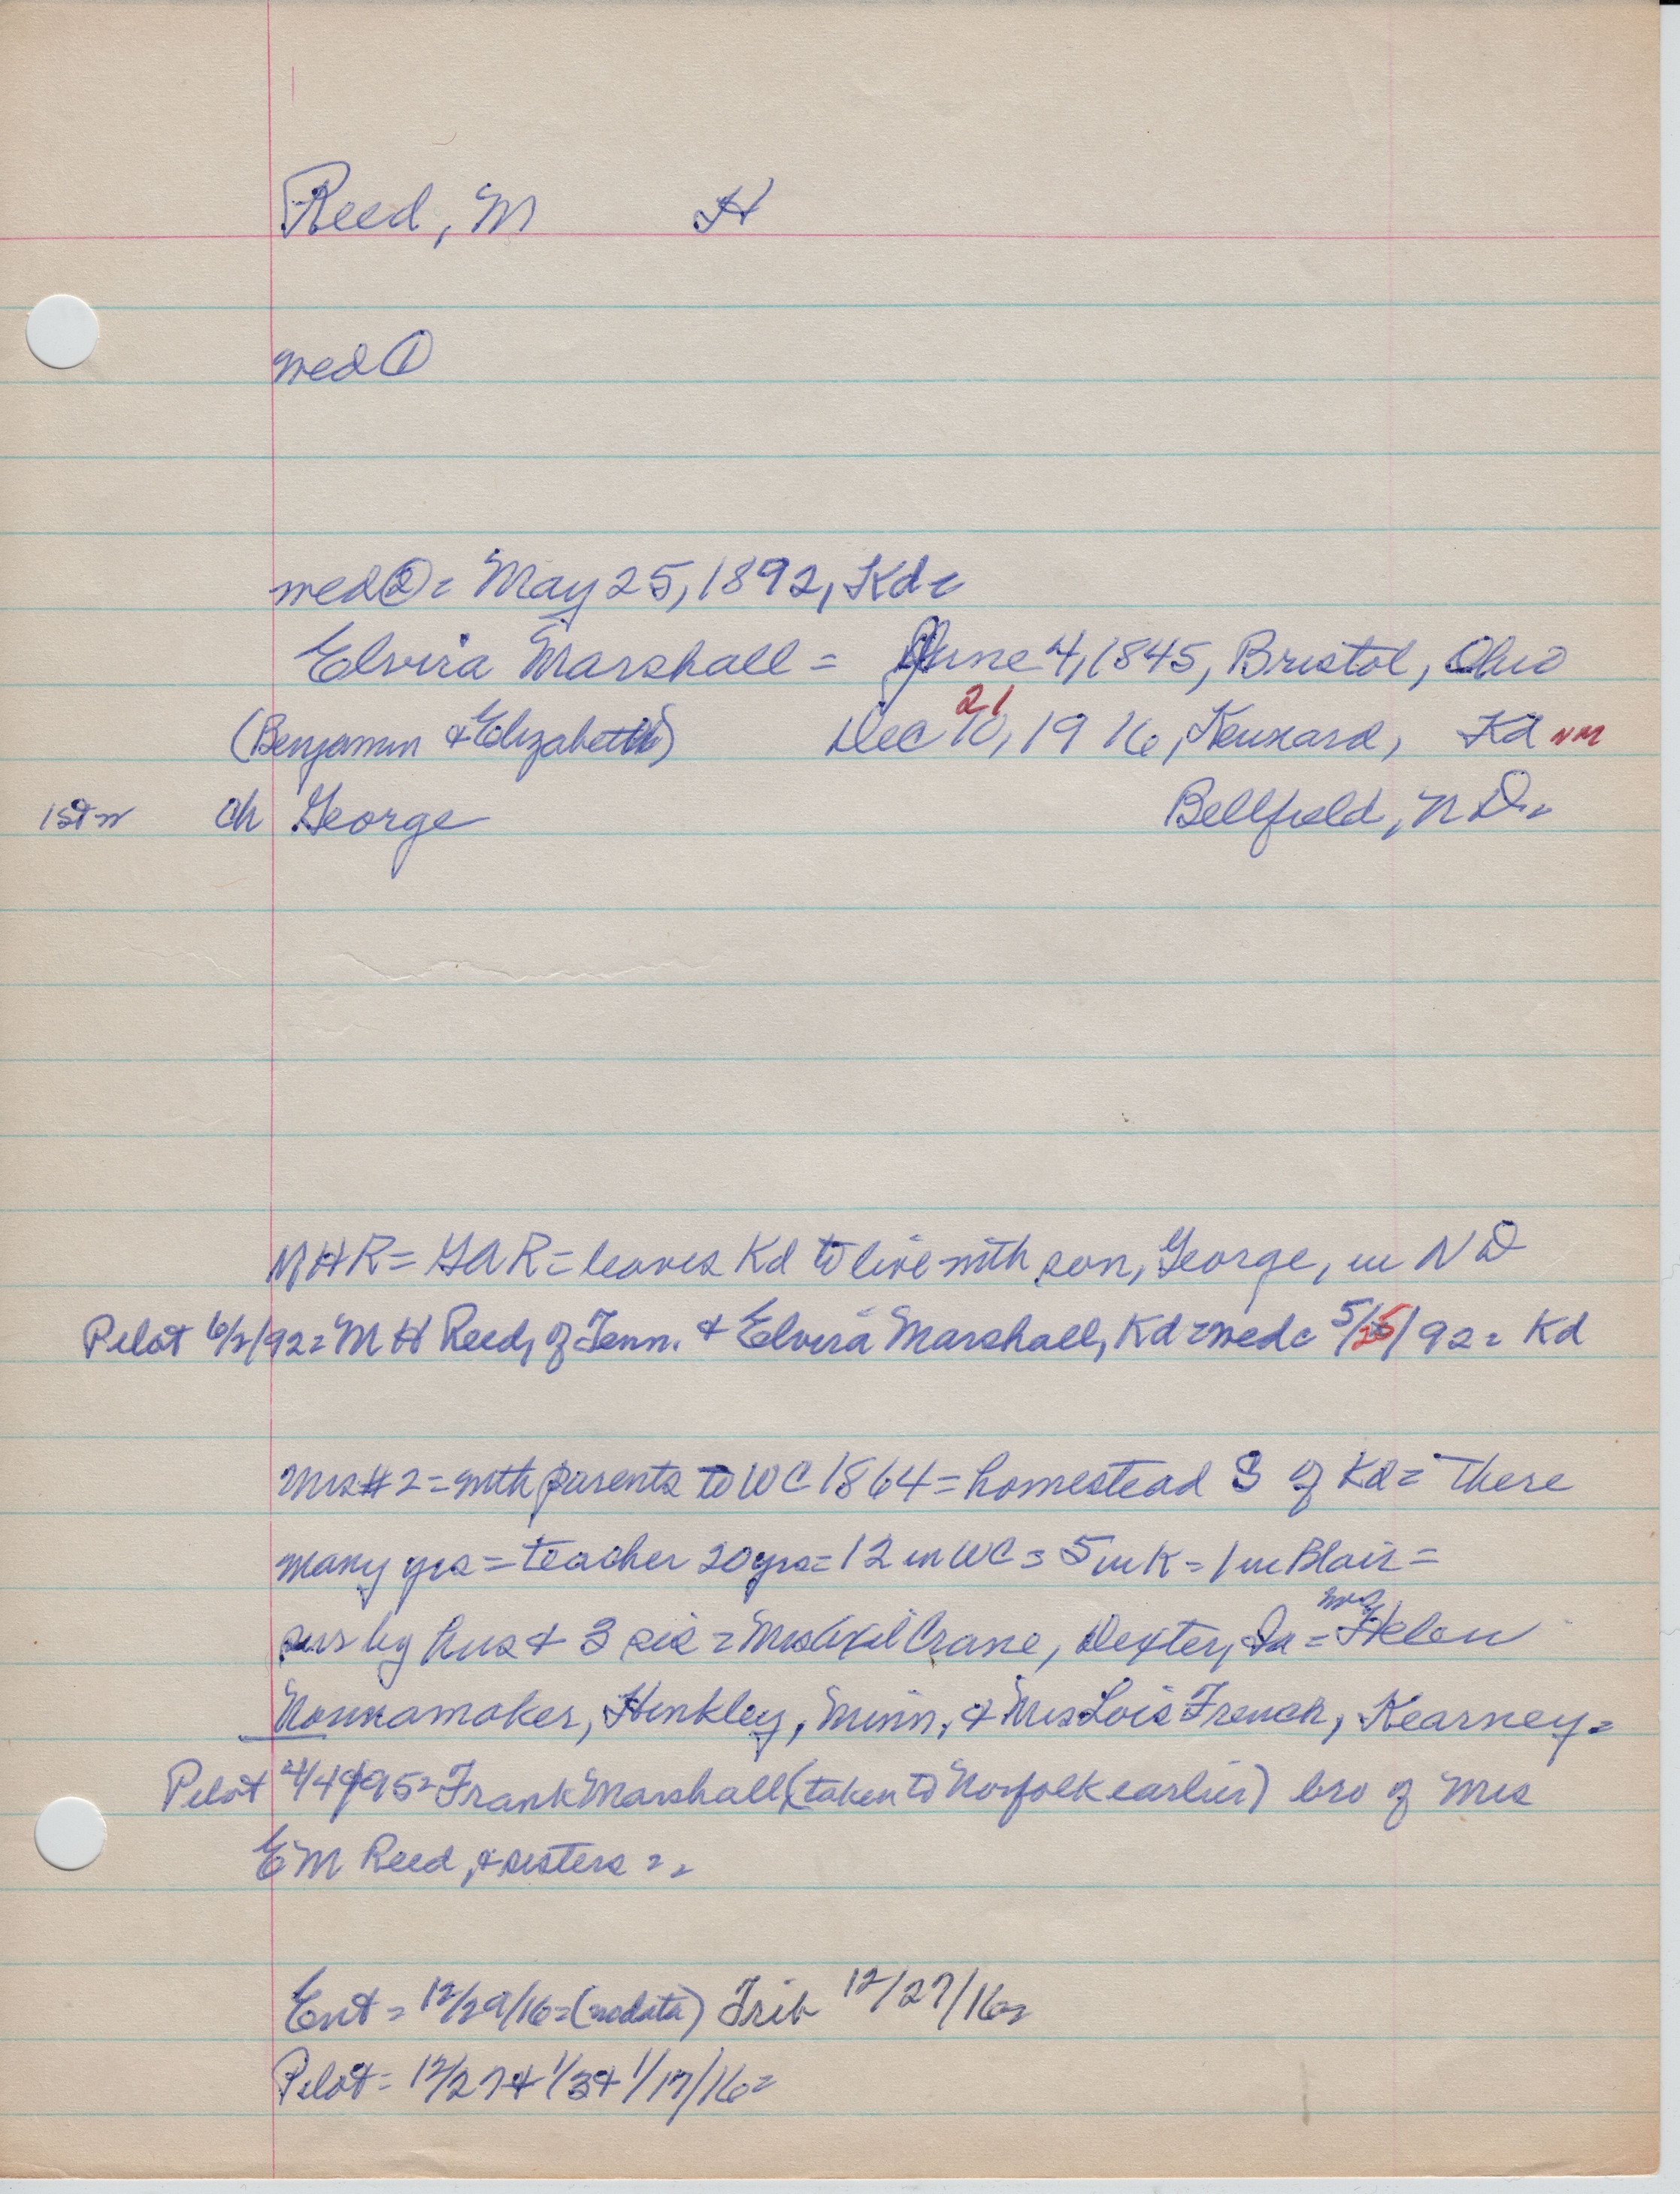 Reed, M H
wed ①
wed ② = May 25, 1892, Kd =
Elvira Marshall = June 4, 1845, Bristol, Ohio
(Benjamin & Elizabeth) Dec 10, 21 1916, Kennard, Kd
1st w ch George Bellfield, N D =
MHR = GAR = leaves Kd to live with son, George, in N D
Pilot 6/2/92 = M H Reed, of Tenn. & Elvira Marshall, Kd = wed = 5/25/92 = Kd
Mrs #2 = with parents to WC 1864 = homestead S of Kd = there
many yrs = teacher 20 yrs = 12 in WC = 5 in K = 1 in Blair =
surv by hus & 3 sis = Mrs Crane, Dexter, Ia = Mrs Helen
Nonnamaker, Hinkley, Minn, & Mrs Lois French, Kearney =
Pilot 4/4/95 = Frank Marshall (taken to Norfolk earlier) bro of Mrs
E M Reed, & sisters = =
Ent = 12/29/16 = (no data) Trib 12/27/16 =
Pilot = 12/27 & 1/3 & 1/17/16 =